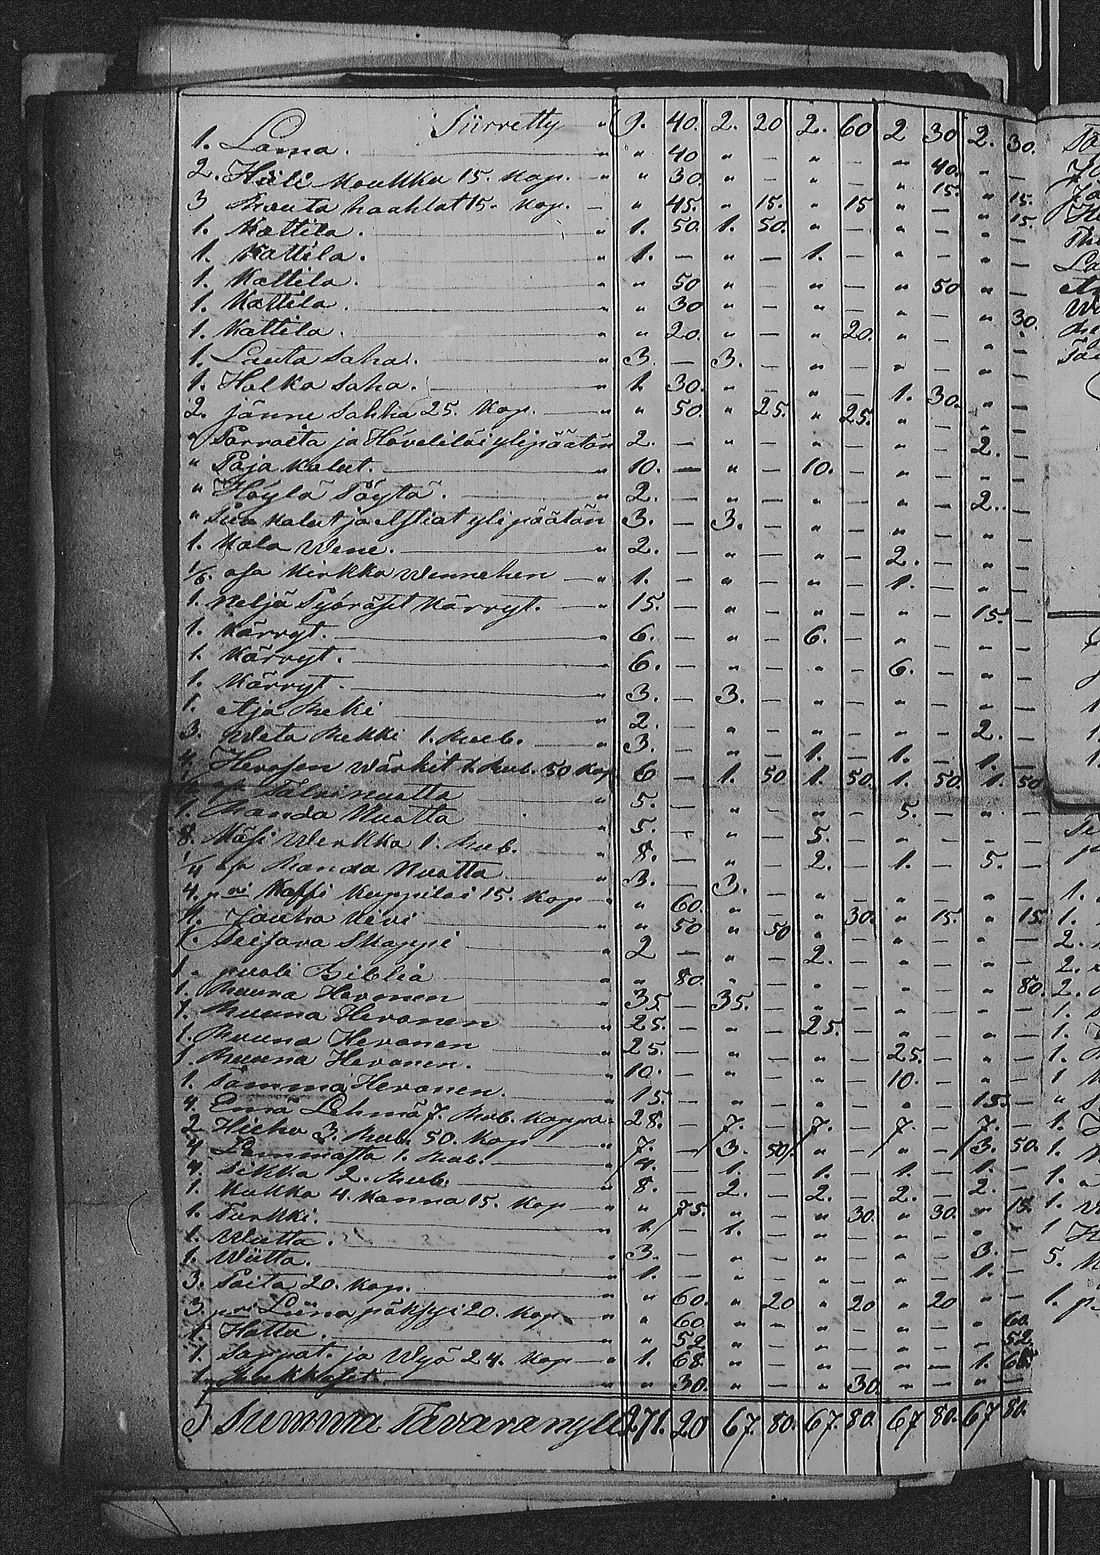 Siirretty " 9. 40. 2. 20 2. 60 2. 30 2. 30.
1. Lama. " " 40 " — " — " 40. " —
2. Hiili Koukku 15. Kop. " " 30. " — " — " 15. " 15.
3 Rauta haahlat 15. Kop. — " 45. " 15. " 15 " — " 15.
1. Kattila. " 1. 50. 1. 50. " — " — " —
1. Kattila. " 1. — " — 1. — " — " —
1. Kattila. " " 50 " — " — " 50 " —
1. Kattila. " " 30 " — " — " — " 30.
1. Kattila. " " 20. " — " 20. " — " —
1. Lauta Saha. " 3. — 3. — " — " — " —
1. Halko Saha. " 1. 30. " — " — 1. 30. " —
2. jänne Sahha 25. Kop. " " 50. " 25. " 25. " — " —
" Porraita ja Höveliläi ylipäätän 2. — " — " — " — 2. —
" Paja Kalut. " 10. — " — 10. — " — " —
" Höylä Pöytä. " 2. — " — " — " — 2. —
" Puu kalut ja astiat ylipäätän 3. — 3. — " — " — " —
1. Kala Wene. " 2. — " — " — 2. — " —
1/6. osa Kirkko Wennehen " 1. — " — " — 1. — " —
1. Neljä Pyöräset Kärryt. " 15. — " — " — " — 15. —
1. Kärryt. " 6. — " — 6. — " — " —
1. Kärryt. " 6. — " — " — 6. — " —
1. Kärryt. " 3. — 3. — " — " — " —
1. Aja Reki " 2. — " — " — " — 2. —
3. Reki 1. Rub. " 3. — " — 1. — 1. — 1. —
4. Hevosen Wärkit 1. Rub. 50 Kop 6 — 1. 50 1. 50. 1. 50. 1. 50
osa Talvi nuotta " 5. — " — " — 5. — " —
1. Randa Nuotta " 5. — " — 5. — " — " —
8. Wäsi Werkko 1. Rub. " 8. — " — 2. — 1. — 5. —
1/4 osa Randa Nuotta " 3. — 3. — " — " — " —
4. pari Kaffi Kuppiloi 15. Kop " " 60. " — " 30. " 15. " 15.
1. Jauho Kivi " " 50 " 50 " — " — " —
1. Skappi " 2 — " — 2. — " — " —
1. puoli Biblia " " 80. " — " — " — " 80.
1. Ruuna Hevonen " 35 — 35. — " — " — " —
1. Ruuna Hevonen " 25. — " — 25. — " — " —
1. Ruuna Hevonen " 25. — " — " — 25. — " —
1. Ruuna Hevonen. " 10. — " — " — 10. — " —
1. Tamma Hevonen. " 15. — " — " — " — 15. —
4. Emä Lehmä 7. Rub. Kappa " 28. — 7. — 7. — 7. — 7. —
2 Hieho 3. Rub. 50. Kop " 7. — 3. 50. " — " — 3. 50.
4 Lammasta 1. Rub. " 4. — 1. — 1. — 1. — 1. —
4. Sikka 2. Rub. " 8. — 2. — 2. — 2. — 2. —
1. Kukko 4. Kanna 15. Kop " " 75. " — " 30. " 30. " 15.
1. Turkki. " 1. — 1. — " — " — " —
1. Wiitta. " 3. — " — " — " — 3. —
1. Wiitta. " 1. — " — " — " — 1. —
3. Paita 20. Kop. " " 60. " 20 " 20 " 20 " —
3. par Liina pöksyi 20. Kop. " " 60. " — " — " — " 60.
1. Hattu. " " 52. " — " — " — " 52.
1. Sappat. ja Wyö 24. Kop " 1. 68. " — " — " — 1. 68.
1. " " 30. " — " 30. " — " —
Summa Tavara 271. 20 67. 80. 67. 80. 67 80. 67 80.